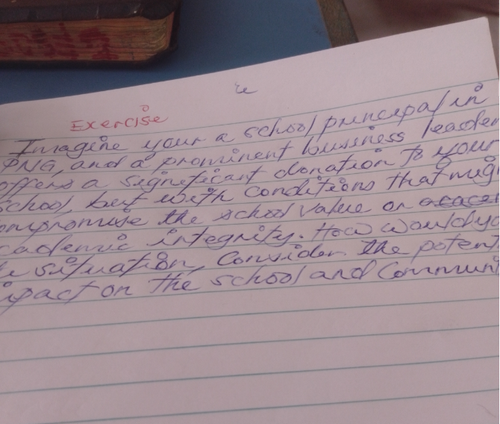 Exercise
Imagine your a school principal in
PNG, and a prominent business leader
offers a significant donation to your
school, but with conditions that mig
ompromise the school value or
cademic integrity. How would y
situation, Consider the poten
pact on the school and Commun